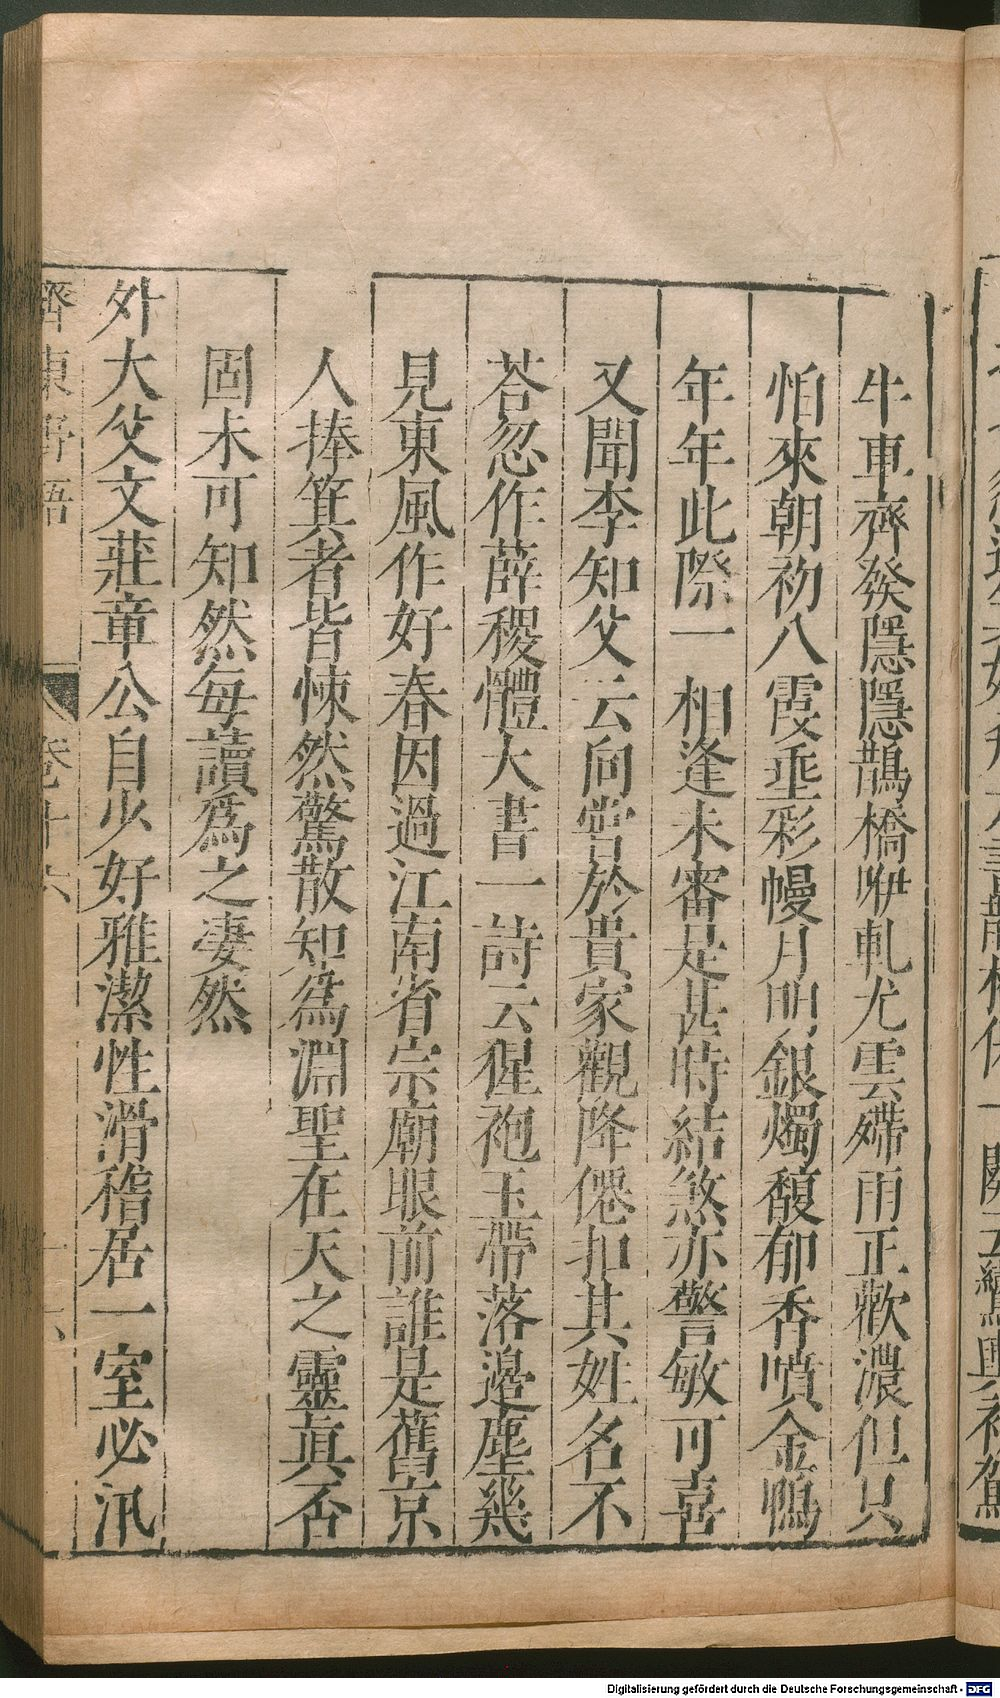 牛車齊發隱隱鵲橋咿軋尤雲殢雨正歡濃但只
怕來朝初八霞垂彩幔月明銀燭馥郁香噴金鴨
年年此際一相逢未審是甚時結煞亦警敏可喜
又聞李知父云向嘗於貴家觀降僊扣其姓名不
荅忽作薛稷體大書一詩云猩袍玉帶落邉塵幾
見東風作好春因過江南省宗廟眼前誰是舊京
人捧箕者皆悚然驚散知爲淵聖在天之靈眞否
固未可知然每讀爲之凄然
外大父文莊章公自少好雅潔性滑稽居一室必汛
齊東野語 卷十六
Digitalisierung gefördert durch die Deutsche Forschungsgemeinschaft - DFG